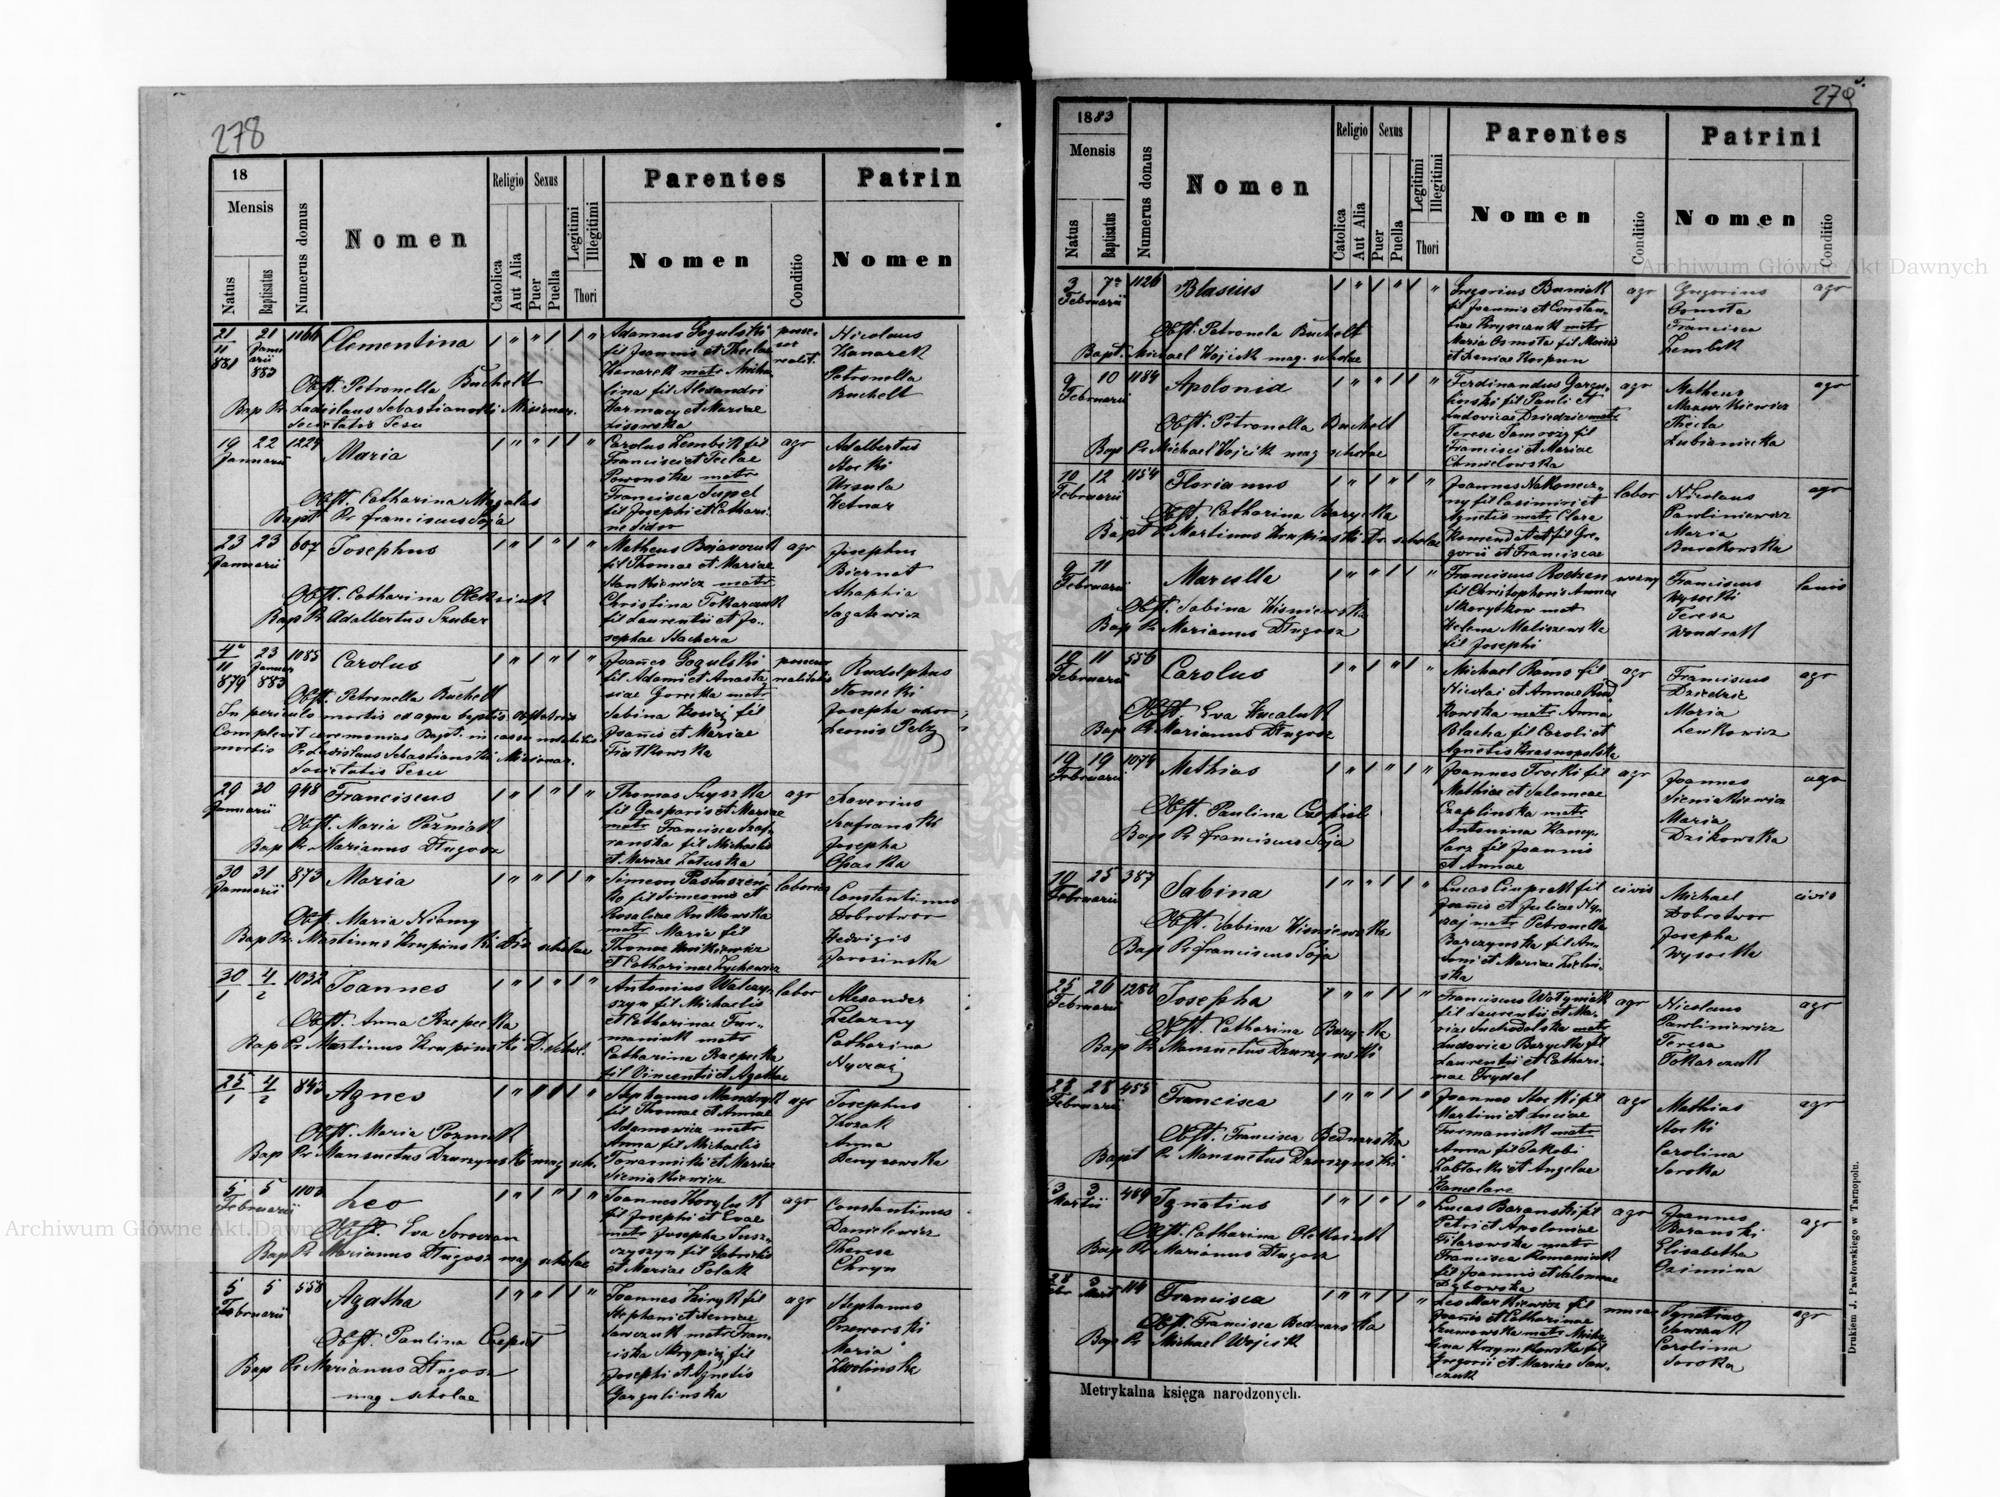 278
18
Mensis
Natus
Baptisatus
Numerus domus
Nomen
Religio
Catolica
Aut Alia
Sexus
Puer
Puella
Legitimi
Illegitimi
Thori
Parentes
Nomen
Conditio
Patrin
Nomen
21/11 881
21 Januarii 883
1166
Clementina
Obst. Petronella Bucholt
Bap Pr Ladislaus Sebastianski Misionar.
Societatis Jesu
Adamus Gogulski
fil Joannis et Theclae
Kanarek matr Micha-
lina fil Alexandri
Karmacy et Mariae
Lisowska
Nicolaus
Kanarek
Petronella
Bucholt
19 Januarii
22
1229
Maria
Obst. Catharina
Bapt Pr Franciscus Soja
Carolus Zembik fil
Francisci et Teclae
matr
Francisca Supel
fil Josephi et Cathari-
nae Sidor
ago
Adalbertus
Storki
Ursula
Wetnar
23 Januarii
23
607
Josephus
Obst. Catharina Oleksiuk
Bap Pr Adalbertus Szuber
Matheus
fil Thomae et Mariae
Stankiewicz matr
Christina Tokarczuk
fil Laurentii et Jo-
sephae Stachera
ago
Josephus
Biernat
Ahaphia
4
11
879
23 Januar 883
1085
Carolus
Obst. Petronella Bucholt
In periculo mortis ex aqua baptis obstetrix
Complevit ceremonias Bapt. in casu
mortis Pr Ladislaus Sebastianski Misionar.
Societatis Jesu
Joanes Gogulski
fil Adami et Anasta
siae Gorecka matr
Sabina Kosiej fil
Joanis et Mariae
Fiatkowska
possessor
realitatis
Rudolphus
Stanecki
Josepha uxor
Leonis Pelz
29 Januarii
30
948
Franciscus
Obst. Maria Pozniak
Bap Pr Marianus Dlugosz
Thomas Szyszka
fil Gasparis et Mariae
matr Francisca Szaf-
ranska fil Michaelis
et Mariae Zatuska
ago
Xaverius
Szafranski
Josepha
Opacka
30 Januarii
31
873
Maria
Obst. Maria Niemy
Bap Pr. Martinus Krupinski Dir scholae
Simeon Pastuszen-
ko fil Simeonis et
Rosaliae Rutkowska
matr Maria fil
Thomae
et Catharinae Zychewicz
laborios
Constantinus
Dobrotwor
Hedvigis
Jarosinska
30/1
4/2
1032
Joannes
Obst. Anna Rzepecka
Bap Pr Martinus Krupinski D. schol.
Antonius Walczy-
szyn fil Michaelis
et Catharinae Fur-
maniuk matr
Catharina Rzepecka
fil Vincentii et Agathae
labor
Alexander
Zelazny
Catharina
Nyczaj
25/1
4/2
843
Agnes
Obst. Maria Pozniak
Bap Pr Mansuetus Dzurzynski mag sch.
Stephanus Mandryk
fil Thomae et Annae
Adamowicz matr
Anna fil Michaelis
Towarnicki et Mariae
Sieniakiewicz
ago
Josephus
Kozak
Anna
Denyszewska
5 Februarii
5
1103
Leo
Obst. Eva Soroczan
Bap Pr Marianus Dlugosz mag scholae
Joannes Koryluk
fil Josephi et Evae
matr Josepha Susz-
czyszyn fil Gabrielis
et Mariae Polak
ago
Constantinus
Danilewicz
Theresa
Chryn
5 Februarii
5
558
Agatha
Obst. Paulina Czepiel
Bap Pr Marianus Dlugosz
mag scholae
Joannes Zairyk fil
Stephani et Xeniae
Sawczuk matr Fran-
ciska Skrypij fil
Josephi et Agnetis
Gargulinska
ago
Stephanus
Przeworski
Maria
Zwolinska
279
1883
Mensis
Natus
Baptisatus
Numerus domus
Nomen
Religio
Catolica
Aut Alia
Sexus
Puer
Puella
Legitimi
Illegitimi
Thori
Parentes
Nomen
Conditio
Patrini
Nomen
Conditio
3 Februarii
7
1126
Blasius
Obst. Petronela Bucholt
Bapt. Michael Wojcik mag. scholae
Gregorius Burniak
fil Joannis et Constan-
tiae Kryszczuk matr
Maria Osmota fil Marci
et Xeniae Korpan
ago
Gregorius
Osmota
Francisca
Zembik
ago
9 Februarii
10
1184
Apolonia
Obst. Petronella Bucholt
Bap Pr Michael Wojcik mag scholae
Ferdinandus Gargu-
linski fil Pauli et
Ludovicae Dziedzic matr
Teresa Jamrozy fil
Francisci et Mariae
Chmielowska
ago
Matheus
Mazurkiewicz
Thecla
Lubianiecka
ago
10 Februarii
12
1154
Florianus
Obst. Catharina Barycka
Bapt Pr Martinus Krupinski Dr. scholae
Joannes Nakoniecz-
ny fil Casimiri et
Agnetis matr Clara
Komendat fil Gre-
gorii et Franciscae
labor
Nicolaus
Pawliniewicz
Maria
Burakowska
ago
9 Februarii
11
Marcella
Obst. Sabina Wisniewska
Bap Pr Marianus Dlugosz
Franciscus
fil Christophori et Annae
Skorybkow mat
Helena Maliszewska
fil Josephi
wozny
Franciscus
Wysocki
Teresa
Wondrak
10 Februarii
11
556
Carolus
Obst Eva Kucaluk
Bap Pr Marianus Dlugosz
Michael Rams fil
Nicolai et Annae Rud
kowska matr Anna
Blacha fil Caroli et
Agnetis Krasnopolska
ago
Franciscus
Dziedzic
Maria
Lewkowicz
ago
19 Februarii
19
1074
Mathias
Obst. Paulina Czepiel
Bap Pr Franciscus Soja
Joannes Trocki fil
Mathiae et Salomeae
Czaplinska matr
Antonina Kamy-
larz fil Joannis
et Annae
ago
Joannes
Sieniakiewicz
Maria
Dzikowska
ago
19 Februarii
25
387
Sabina
Obst. Sabina Wisniewska
Bap Pr Franciscus Soja
Lucas Ciuprak fil
Joanis et Juliae Ny-
czaj matr Petronella
Barczynska fil An-
toni et Mariae Zielin-
ska
civis
Michael
Dobrotwor
Josepha
Wysocka
civis
25 Februarii
26
1280
Josepha
Obst. Catharina Barycka
Bap Pr Mansuetus Dzurzynski
Franciscus Wolyniak
fil Laurentii et Ma-
riae Suchodolska matr
Ludovica Barycka fil
Laurentii et Cathari-
nae Frydel
ago
Nicolaus
Pawliniewicz
Teresa
Tokarczuk
ago
28 Februarii
28
455
Francisca
Obst. Francisca Bednarska
Bapt Pr Mansuetus Dzurzynski
Joannes Storki fil
Martini et Luciae
Furmaniuk matr
Anna fil Jakobi
Zablocki et Angelae
Kanclarz
ago
Mathias
Storki
Carolina
Soroka
ago
3 Martii
3
489
Ignatius
Obst. Catharina Oleksiuk
Bap Pr Marianus Dlugosz
Lucas Baranski fil
Petri et Apoloniae
Filarowska matr
Francisca Romaniuk
fil Joannis et Salomeae
Dybowska
ago
Joannes
Baranski
Elisabetha
Ozimina
ago
28 Febr
3 Mart
114
Francisca
Obst. Francisca Bednarska
Bap Pr Michael Wojcik
Leo Markiewicz fil
Joanis et Catharinae
Szumowska matr Micha
lina Krzymkowska fil
Gregorii et Mariae Saw-
czuk
Ignatius
Sawczuk
Carolina
Soroka
ago
Metrykalna księga narodzonych.
Drukiem J. Pawłowskiego w Tarnopolu.
Archiwum Główne Akt Dawnych
Archiwum Główne Akt Dawnych